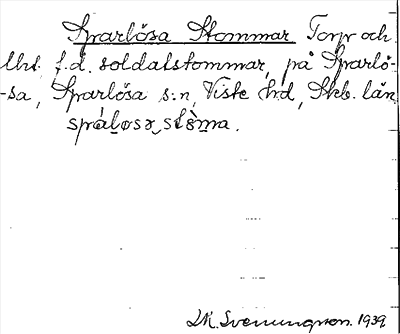 Sparlösa Stommar Torp och
lht. f.d. soldatstommar, på Sparlö-
-sa, Sparlösa s:n, Viste hd, Skb. län.
spáḷosɘ stòm̲a.
Svenungson. 1939